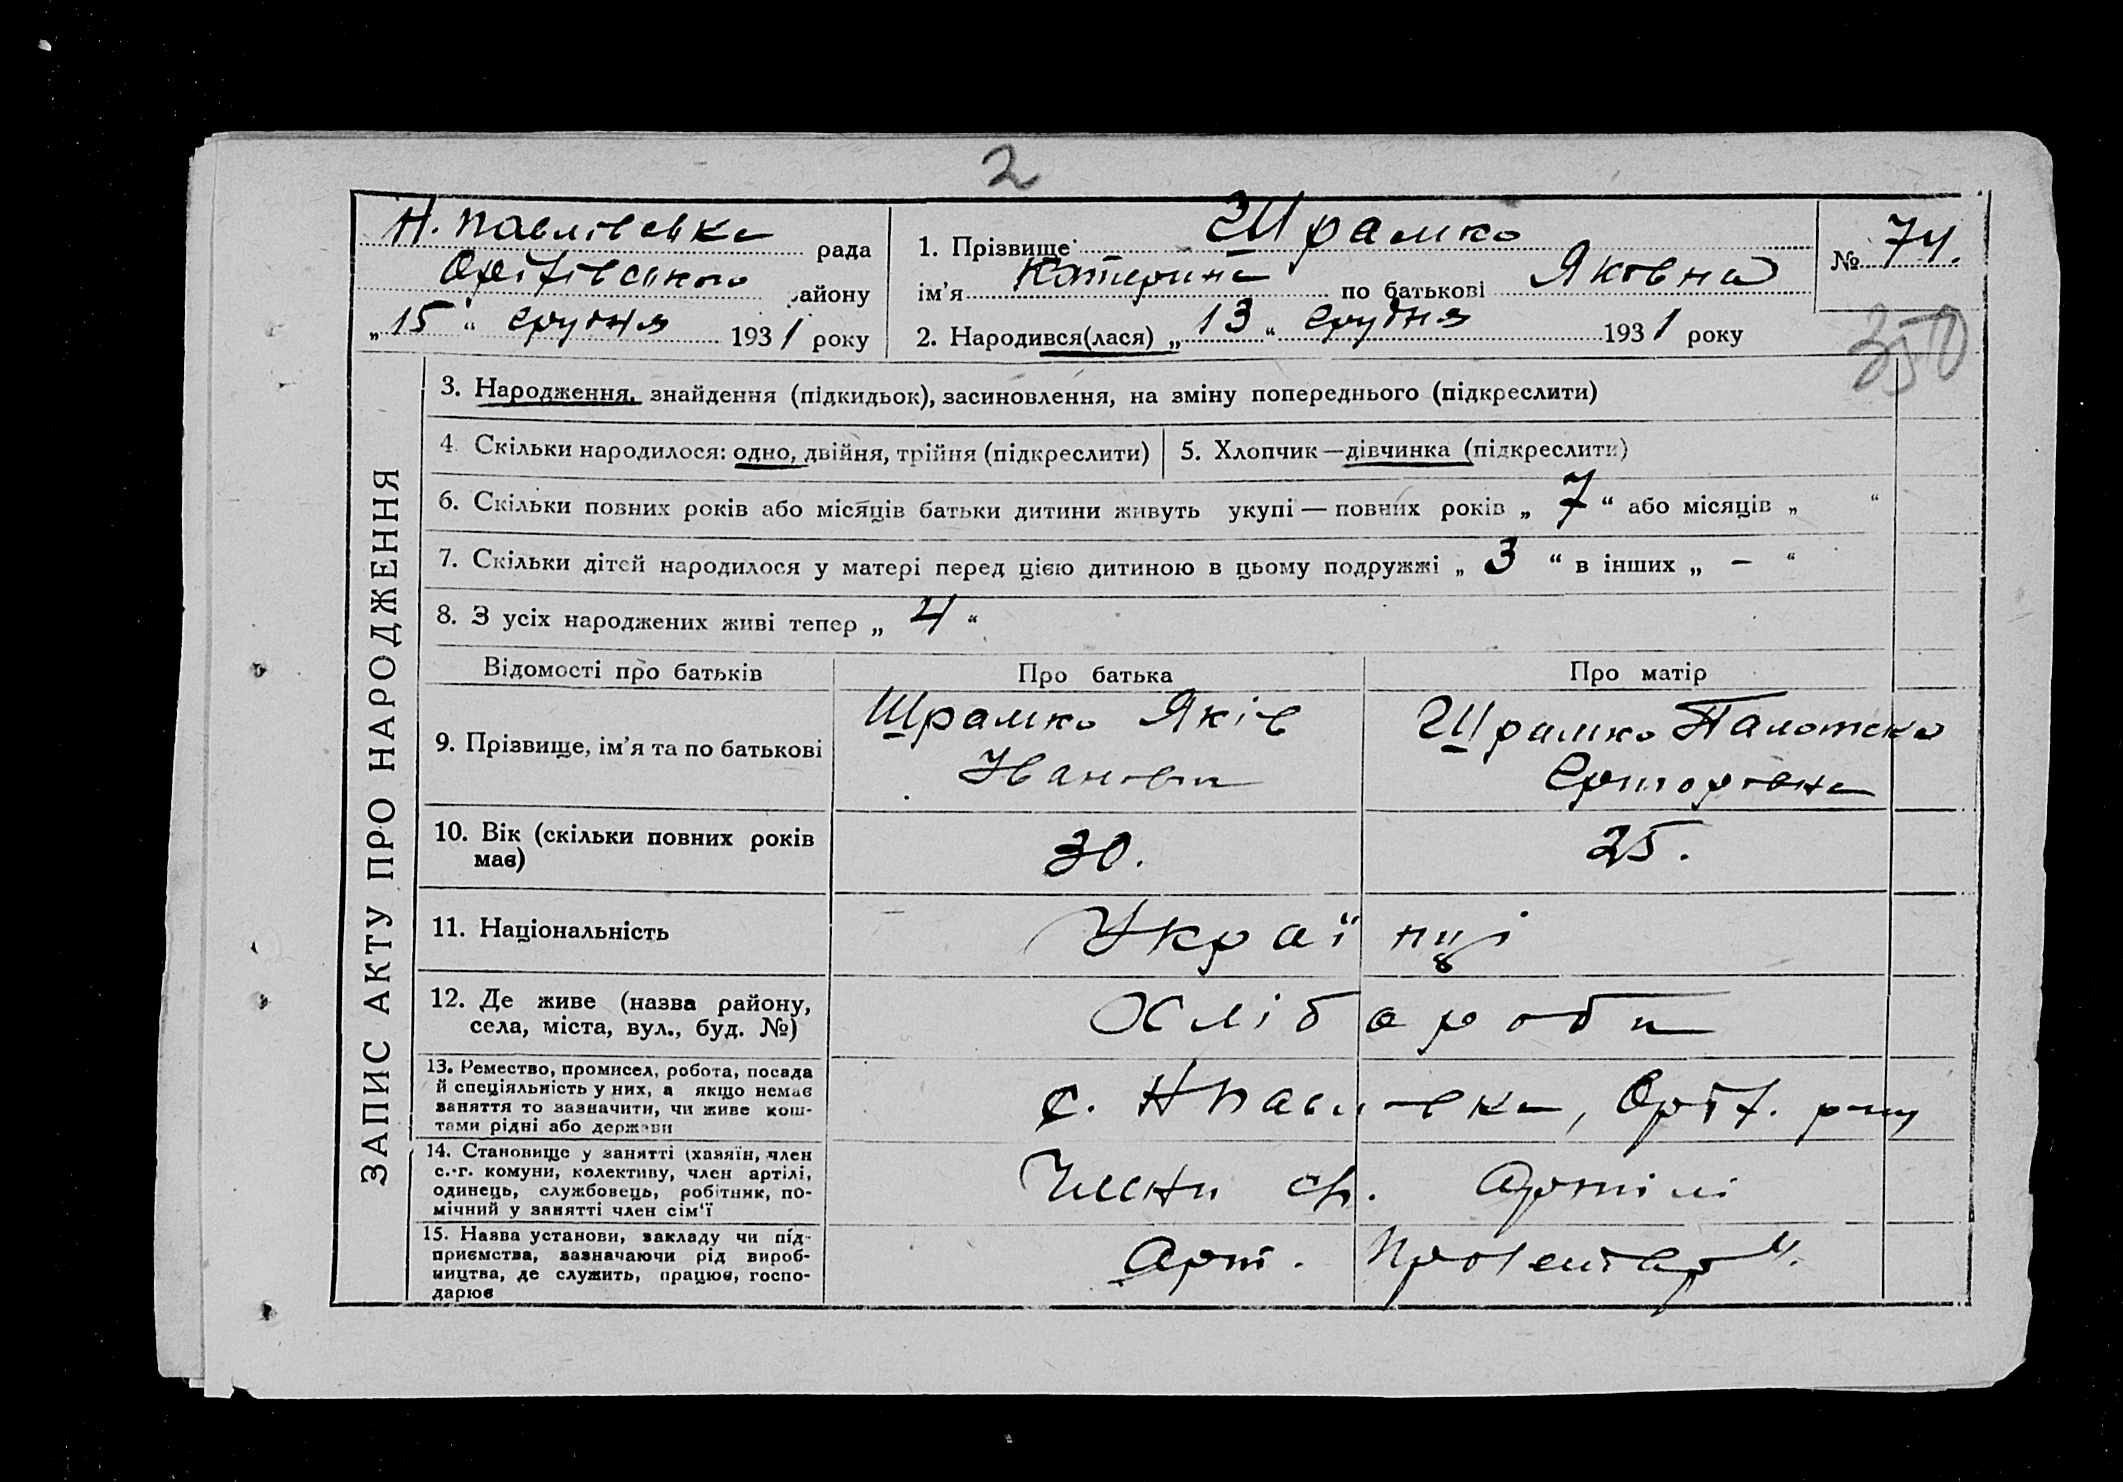 2
Н. Павлівська рада
Оріхівського району
„15“ грудня 1931 року
1. Прізвище Шрамко
ім’я Катерина по батькові Яковна
2. Народився(лася) „13“ грудня 1931 року
№ 74.
350
ЗАПИС АКТУ ПРО НАРОДЖЕННЯ
3. Народження, знайдення (підкидьок), засиновлення, на зміну попереднього (підкреслити)
4. Скільки народилося: одно, двійня, трійня (підкреслити)
5. Хлопчик—дівчинка (підкреслити)
6. Скільки повних років або місяців батьки дитини живуть укупі — повних років „7“ або місяців „ “
7. Скільки дітей народилося у матері перед цією дитиною в цьому подружжі „3“ в інших „–“
8. З усіх народжених живі тепер „4“
Відомості про батьків Про батька Про матір
9. Прізвище, ім’я та по батькові
Шрамко Яків
Іванович
Шрамко Палажка
10. Вік (скільки повних років
має)
30. 25.
11. Національність
Українці
12. Де живе (назва району,
села, міста, вул., буд. №)
Хлібароби
13. Ремество, промисел, робота, посада
й спеціяльність у них, а якщо немає
заняття то зазначити, чи живе кош-
тами рідні або держави
с. Н Павлівка, Оріх. рай
14. Становище у занятті (хазяїн, член
с.-г. комуни, колективу, член артілі,
одинець, службовець, робітник, по-
мічний у занятті член сім’ї
Члени ср. Артілі
15. Назва установи, закладу чи під-
приємства, зазначаючи рід вироб-
ництва, де служить, працює, госпо-
дарює
Арт. Пролетар".